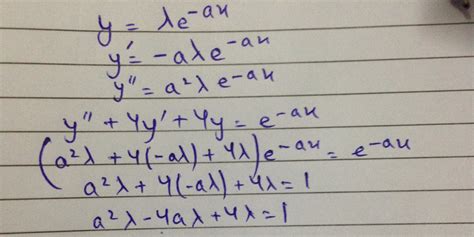 y = λe^-ax
y' = -aλe^-ax
y'' = a²λe^-ax
y'' + 4y' + 4y = e^-ax
(a²λ + 4(-aλ) + 4λ)e^-ax = e^-ax
a²λ + 4(-aλ) + 4λ = 1
a²λ - 4aλ + 4λ = 1